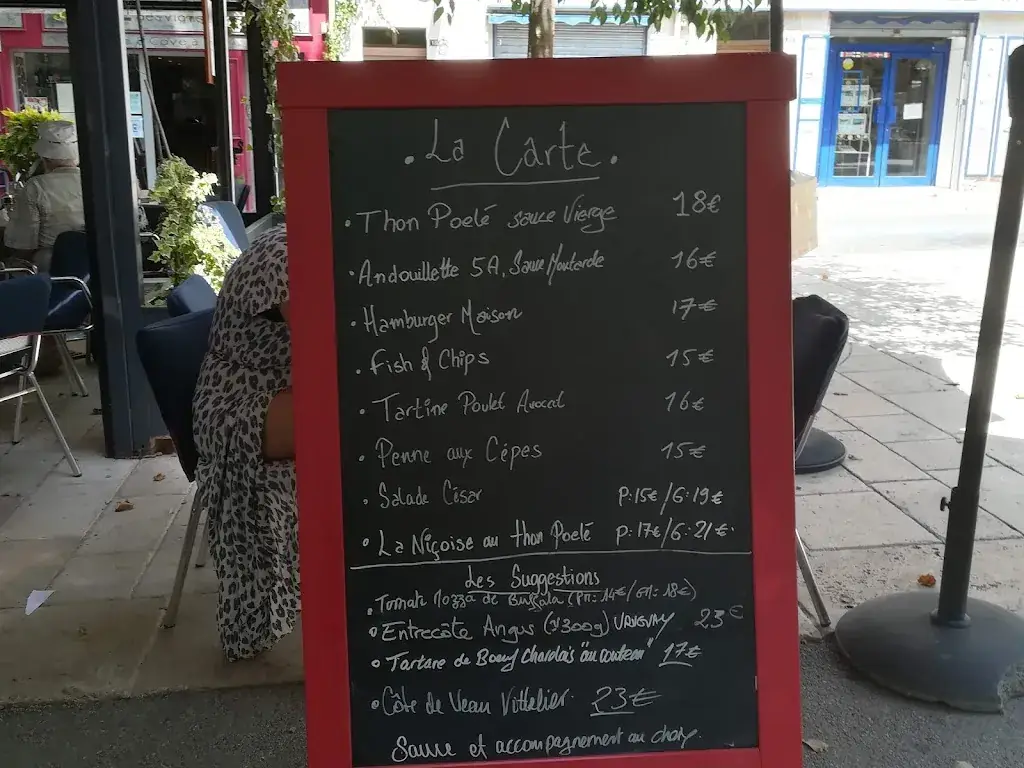 . La Carte.
• Thon Poelé sauce Vierge 18€
• Andouillette 5A, Sauce Moutarde 16€
• Hamburger Maison 17€
• Fish & Chips 15€
• Tartine Poulet Avocat 16€
• Penne aux Cépes 15€
• Salade César P:15€/G:19€
• La Niçoise au thon Poelé P:17€/G:21€
Les Suggestions
• Tomate Mozza de Buffala (PM:14€/GM:18€)
• Entrecôte Angus (≈300g) URUGUAY 23€
• Tartare de Boeuf Charolais "au couteau" 17€
• Côte de Veau Vittelier 23€
Sauce et accompagnement au choix.